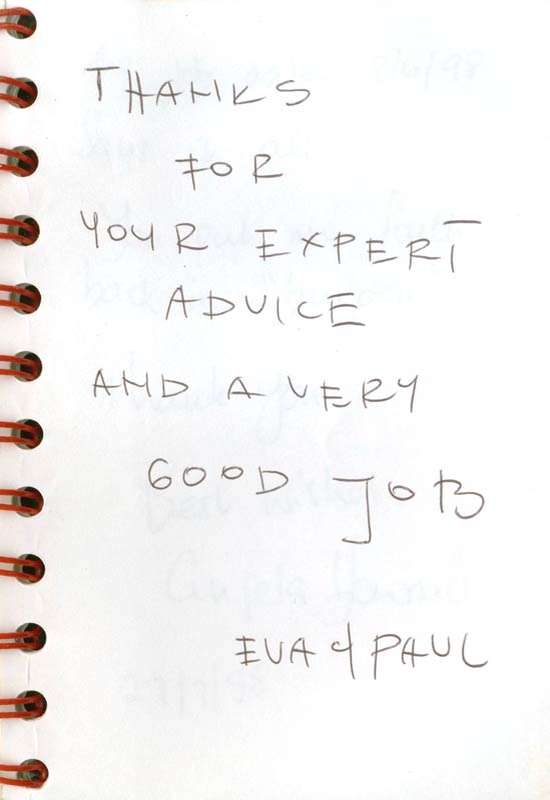 THANKS
FOR
YOUR EXPERT
ADVICE
AND A VERY
GOOD JOB
EVA & PAUL